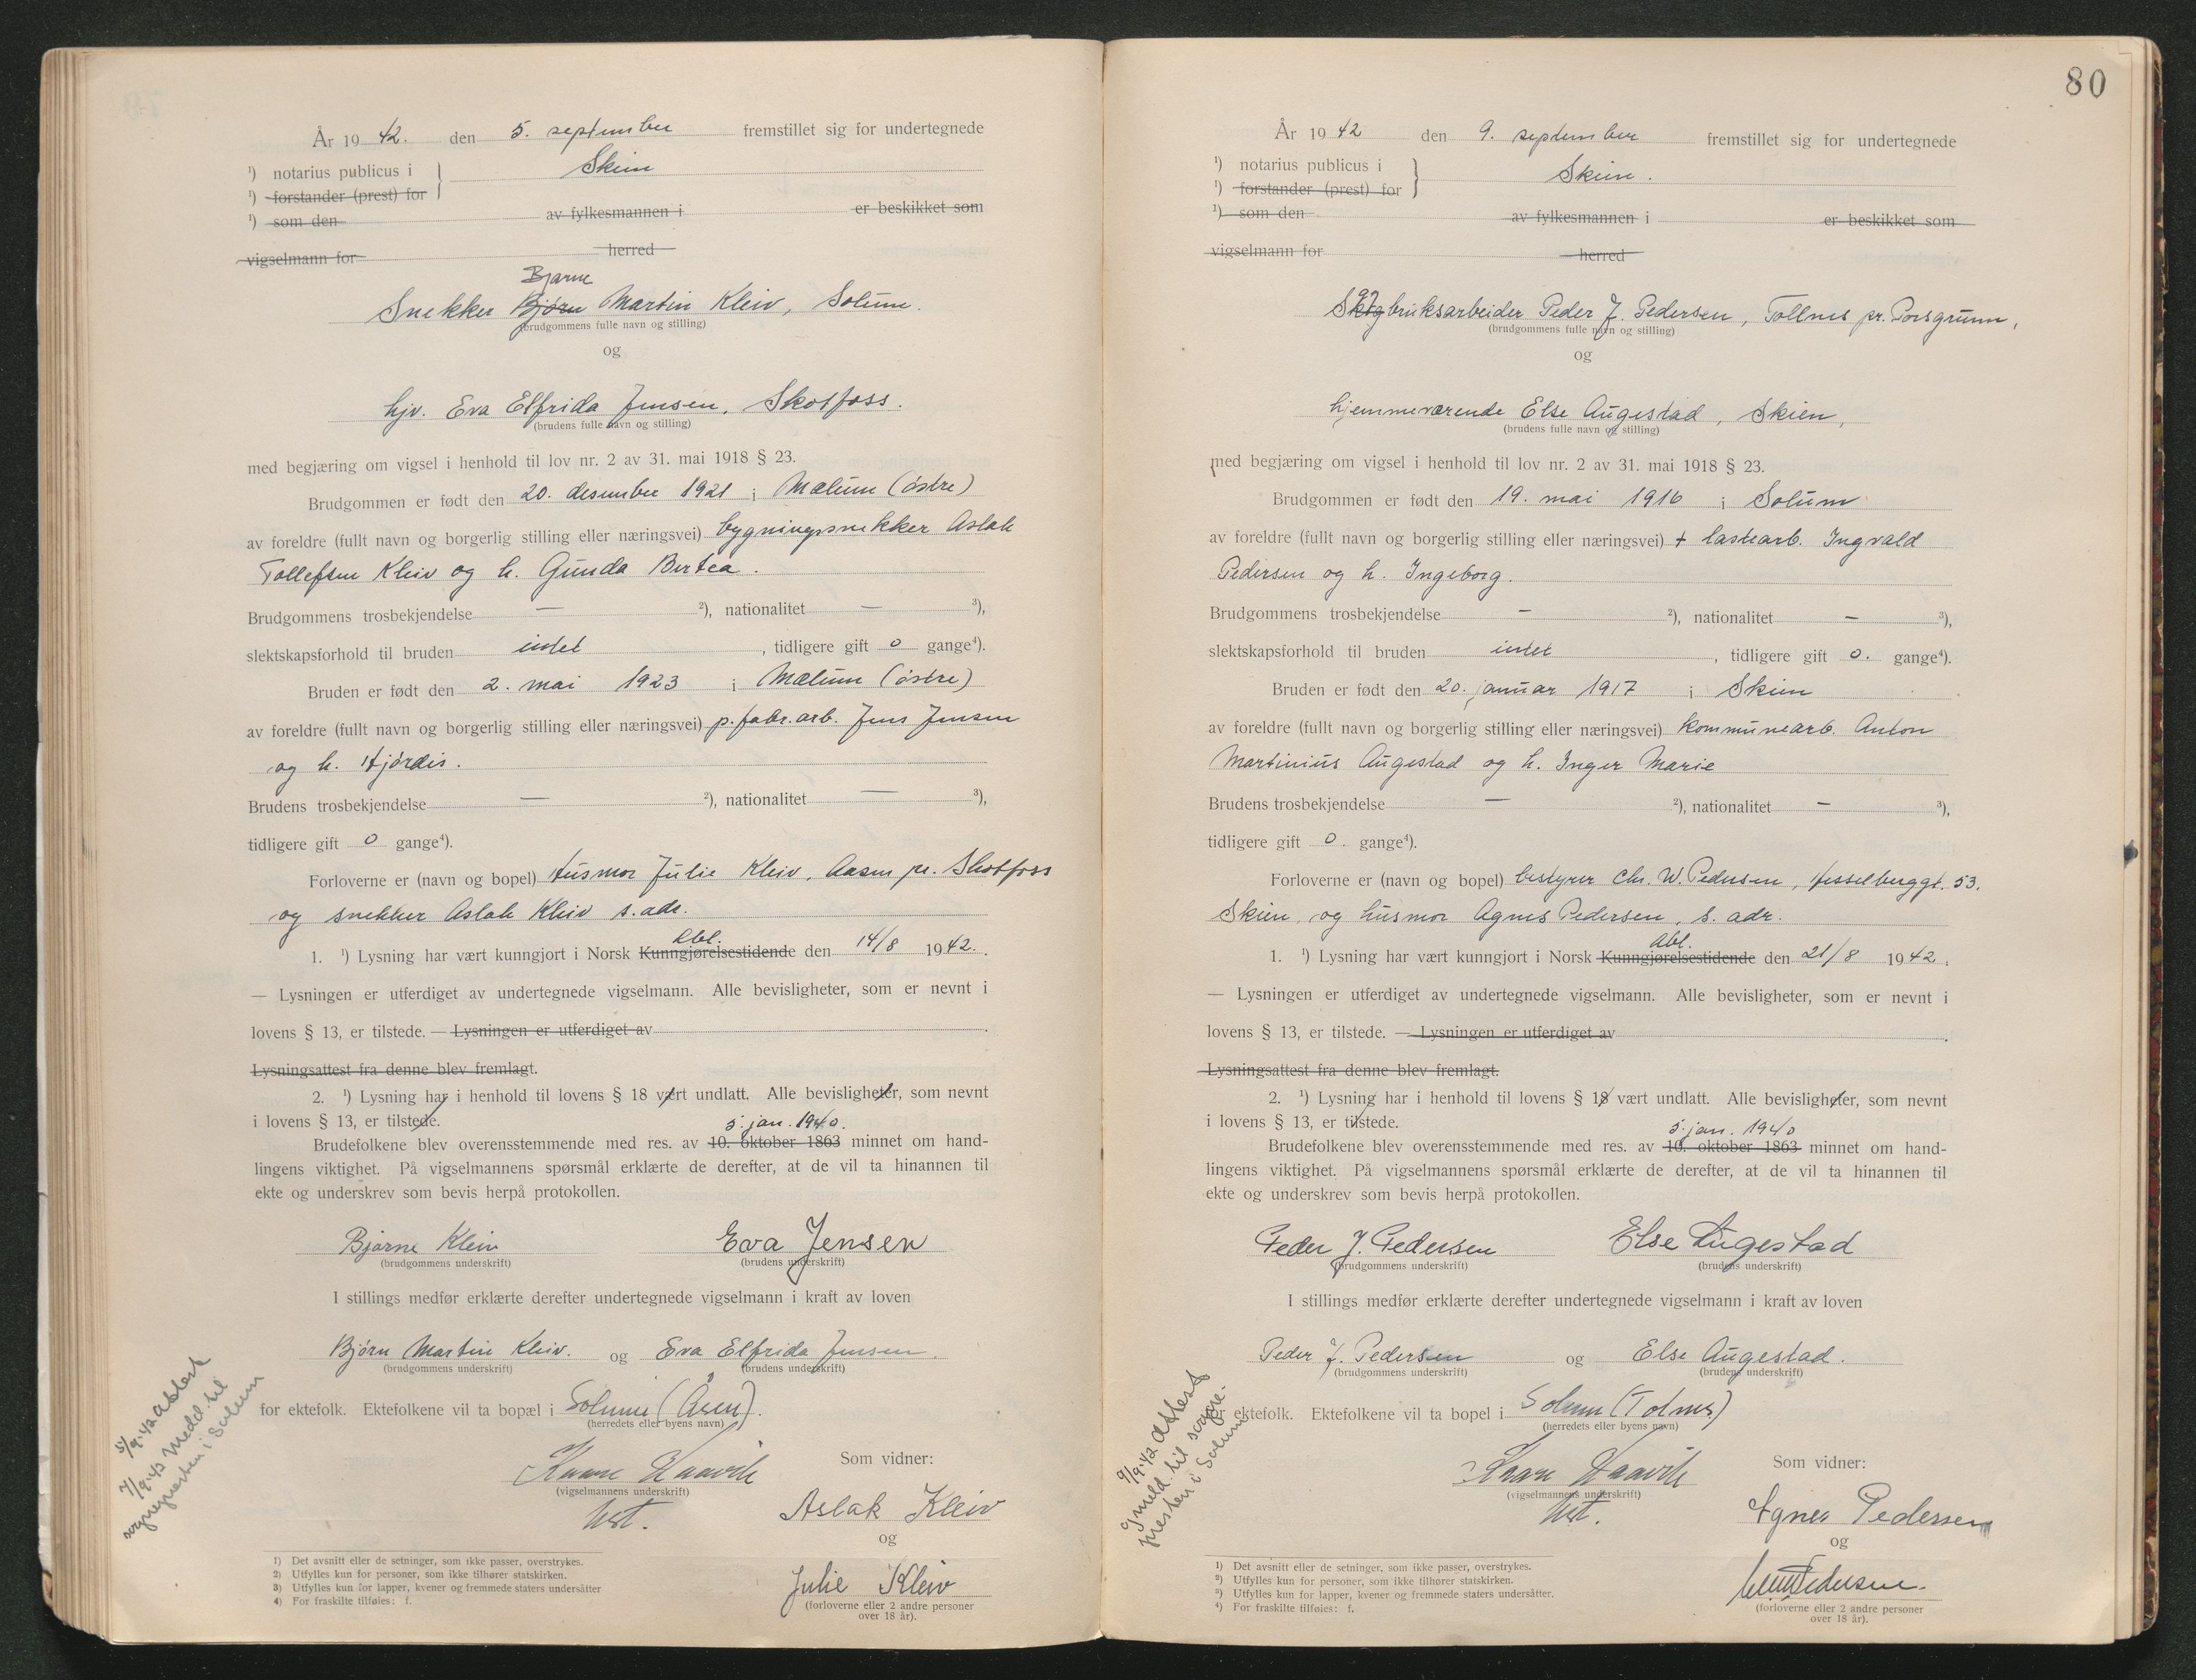 År 19 42. den 5. september fremstillet sig for undertegnede
¹) notarius publicus i } Skien
¹) forstander (prest) for
¹) som den av fylkesmannen i er beskikket som
vigselmann for herred
Bjarne
Snekker Bjørn Martin Kleiv, Solum.
(brudgommens fulle navn og stilling)
og
hjv. Eva Elfrida Jensen, Skotfoss.
(brudens fulle navn og stilling)
med begjæring om vigsel i henhold til lov nr. 2 av 31. mai 1918 § 23.
Brudgommen er født den 20. desember 1921 i Mælum (østre)
av foreldre (fullt navn og borgerlig stilling eller næringsvei) bygningssnekker Aslak
Tollefsen Kleiv og h. Gunda Bertea.
Brudgommens trosbekjendelse — ²), nationalitet — ³),
slektskapsforhold til bruden intet, tidligere gift 0 gange⁴).
Bruden er født den 2. mai 1923 i Mælum (østre)
av foreldre (fullt navn og borgerlig stilling eller næringsvei) p. fabr. arb. Jens Jensen
og h. Hjørdis.
Brudens trosbekjendelse — ²), nationalitet — ³),
tidligere gift 0 gange⁴).
Forloverne er (navn og bopel) Husmor Julie Kleiv, Aasen pr. Skotfoss
og snekker Aslak Kleiv s. adr.
Abl.
1. ¹) Lysning har vært kunngjort i Norsk Kunngjørelsestidende den 14/8 1942.
— Lysningen er utferdiget av undertegnede vigselmann. Alle bevisligheter, som er nevnt i
lovens § 13, er tilstede. — Lysningen er utferdiget av
Lysningsattest fra denne blev fremlagt.
2. ¹) Lysning har i henhold til lovens § 18 vært undlatt. Alle bevisligheter, som nevnt
i lovens § 13, er tilstede.
5. jan. 1940.
Brudefolkene blev overensstemmende med res. av 10. oktober 1863 minnet om hand-
lingens viktighet. På vigselmannens spørsmål erklærte de derefter, at de vil ta hinannen til
ekte og underskrev som bevis herpå protokollen.
Bjarne Kleiv Eva Jensen
(brudgommens underskrift) (brudens underskrift)
I stillings medfør erklærte derefter undertegnede vigselmann i kraft av loven
Bjørn Martin Kleiv. og Eva Elfrida Jensen.
(brudgommens underskrift) (brudens underskrift)
for ektefolk. Ektefolkene vil ta bopæl i Solum (Åsen).
(herredets eller byens navn)
Som vidner:
(vigselmannens underskrift)
Aslak Kleiv
og
Julie Kleiv
(forloverne eller 2 andre personer
over 18 år).
5/9-42 Attest
7/9-42 Medd. til
sognepresten i Solum
¹) Det avsnitt eller de setninger, som ikke passer, overstrykes.
²) Utfylles kun for personer, som ikke tilhører statskirken.
³) Utfylles kun for lapper, kvener og fremmede staters undersåtter
⁴) For fraskilte tilføies: f.
80
År 19 42 den 9. september fremstillet sig for undertegnede
¹) notarius publicus i } Skien.
¹) forstander (prest) for
¹) som den av fylkesmannen i er beskikket som
vigselmann for herred
Skogbruksarbeider Peder J. Pedersen, Tollnes pr. Porsgrunn,
(brudgommens fulle navn og stilling)
og
hjemmeværende Else Augestad, Skien,
(brudens fulle navn og stilling)
med begjæring om vigsel i henhold til lov nr. 2 av 31. mai 1918 § 23.
Brudgommen er født den 19. mai 1916 i Solum
av foreldre (fullt navn og borgerlig stilling eller næringsvei) + lastearb. Ingvald
Pedersen og h. Ingeborg.
Brudgommens trosbekjendelse — ²), nationalitet — ³),
slektskapsforhold til bruden intet, tidligere gift 0. gange⁴).
Bruden er født den 20. januar 1917 i Skien
av foreldre (fullt navn og borgerlig stilling eller næringsvei) kommunearb. Anton
Martinius Augestad og h. Inger Marie
Brudens trosbekjendelse — ²), nationalitet — ³),
tidligere gift 0. gange⁴).
Forloverne er (navn og bopel) bestyrer Chr. W. Pedersen, Hesselberggt. 53.
Skien, og husmor Agnes Pedersen, s. adr.
Abl.
1. ¹) Lysning har vært kunngjort i Norsk Kunngjørelsestidende den 21/8 1942.
— Lysningen er utferdiget av undertegnede vigselmann. Alle bevisligheter, som er nevnt i
lovens § 13, er tilstede. — Lysningen er utferdiget av
Lysningsattest fra denne blev fremlagt.
2. ¹) Lysning har i henhold til lovens § 18 vært undlatt. Alle bevisligheter, som nevnt
i lovens § 13, er tilstede.
5. jan. 1940
Brudefolkene blev overensstemmende med res. av 10. oktober 1863 minnet om hand-
lingens viktighet. På vigselmannens spørsmål erklærte de derefter, at de vil ta hinannen til
ekte og underskrev som bevis herpå protokollen.
Peder J. Pedersen Else Augestad
(brudgommens underskrift) (brudens underskrift)
I stillings medfør erklærte derefter undertegnede vigselmann i kraft av loven
Peder J. Pedersen og Else Augestad.
(brudgommens underskrift) (brudens underskrift)
for ektefolk. Ektefolkene vil ta bopel i Solum (Tolnes)
(herredets eller byens navn)
Som vidner:
(vigselmannens underskrift)
Agnes Pedersen
og
Pedersen.
(forloverne eller 2 andre personer
over 18 år).
9/9-42 Attest
g meld. til sogne-
presten i Solum
¹) Det avsnitt eller de setninger, som ikke passer, overstrykes.
²) Utfylles kun for personer, som ikke tilhører statskirken.
³) Utfylles kun for lapper, kvener og fremmede staters undersåtter.
⁴) For fraskilte tilføies: f.